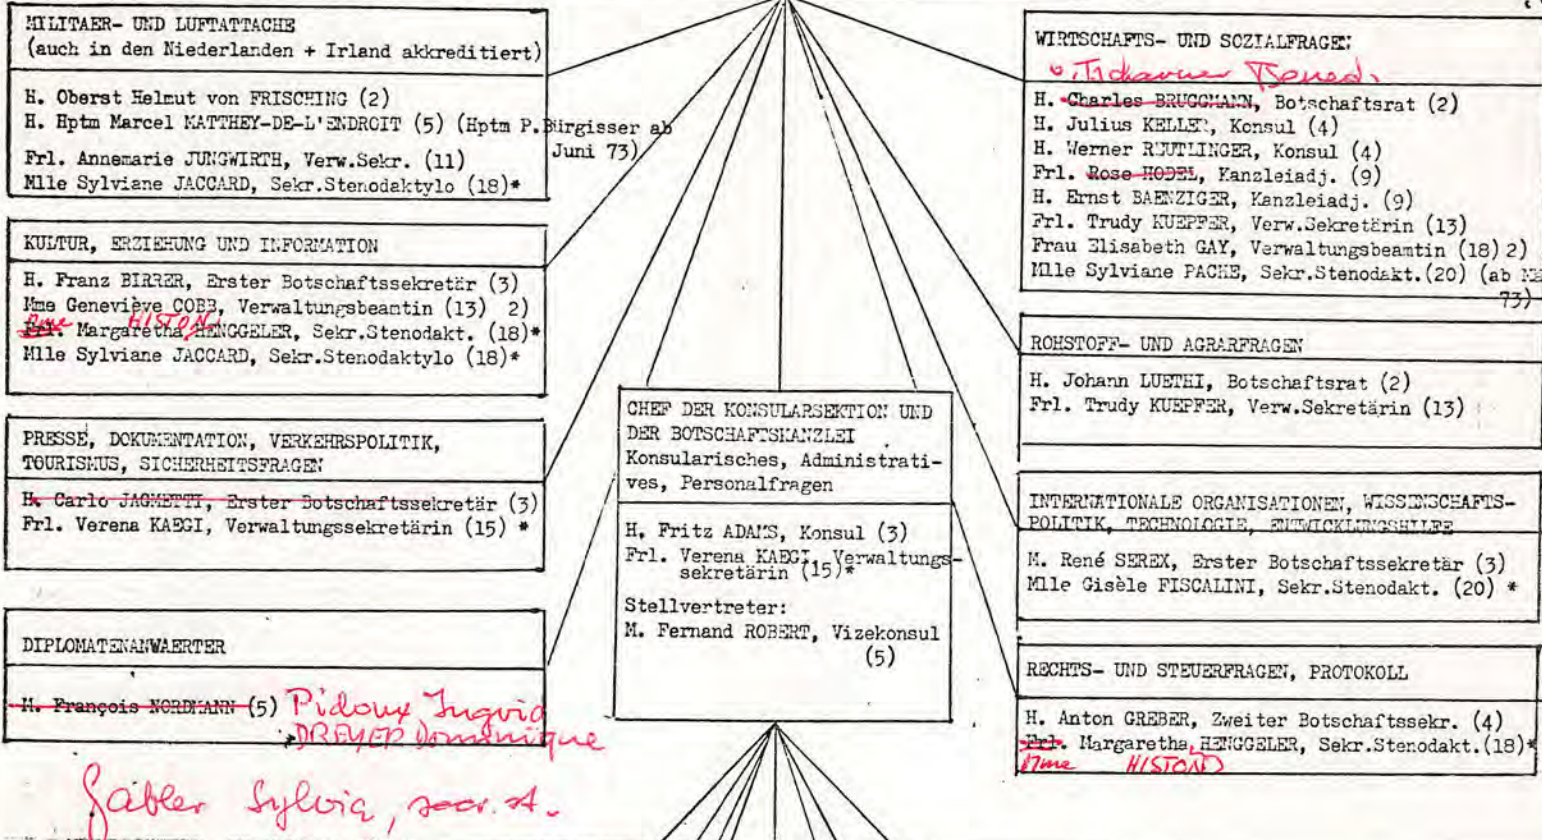 MILITAER- UND LUFTATTACHE
(auch in den Niederlanden + Irland akkreditiert)
H. Oberst Helmut von FRISCHING (2)
H. Hptm Marcel MATTHEY-DE-L'ENDROIT (5) (Hptm P.Bürgisser ab
Juni 73)
Frl. Annemarie JUNGWIRTH, Verw.Sekr. (11)
Mlle Sylviane JACCARD, Sekr.Stenodaktylo (18)*
KULTUR, ERZIEHUNG UND INFORMATION
H. Franz BIRRER, Erster Botschaftssekretär (3)
Mme Geneviève COBB, Verwaltungsbeamtin (13) 2)
Mme HISTON
Frl. Margaretha HENGGELER, Sekr.Stenodakt. (18)*
Mlle Sylviane JACCARD, Sekr.Stenodaktylo (18)*
PRESSE, DOKUMENTATION, VERKEHRSPOLITIK,
TOURISMUS, SICHERHEITSFRAGEN
H. Carlo JAGMETTI, Erster Botschaftssekretär (3)
Frl. Verena KAEGI, Verwaltungssekretärin (15) *
DIPLOMATENANWAERTER
H. François NORDMANN (5) Pidoux Ingrid
DREYER Dominique
Gäbler Sylvia, secr. st.
CHEF DER KONSULARSEKTION UND
DER BOTSCHAFTSKANZLEI
Konsularisches, Administrati-
ves, Personalfragen
H. Fritz ADAMS, Konsul (3)
Frl. Verena KAEGI, Verwaltungs-
sekretärin (15)*
Stellvertreter:
M. Fernand ROBERT, Vizekonsul
(5)
WIRTSCHAFTS- UND SOZIALFRAGEN
v. Tscharner Bened.
H. Charles BRUGGMANN, Botschaftsrat (2)
H. Julius KELLER, Konsul (4)
H. Werner REUTLINGER, Konsul (4)
Frl. Rose HODEL, Kanzleiadj. (9)
H. Ernst BAENZIGER, Kanzleiadj. (9)
Frl. Trudy KUEPFER, Verw.Sekretärin (13)
Frau Elisabeth GAY, Verwaltungsbeamtin (18) 2)
Mlle Sylviane PACHE, Sekr.Stenodakt.(20) (ab
73)
ROHSTOFF- UND AGRARFRAGEN
H. Johann LUETHI, Botschaftsrat (2)
Frl. Trudy KUEPFER, Verw.Sekretärin (13)
INTERNATIONALE ORGANISATIONEN, WISSENSCHAFTS-
POLITIK, TECHNOLOGIE, ENTWICKLUNGSHILFE
M. René SEREX, Erster Botschaftssekretär (3)
Mlle Gisèle FISCALINI, Sekr.Stenodakt. (20) *
RECHTS- UND STEUERFRAGEN, PROTOKOLL
H. Anton GREBER, Zweiter Botschaftssekr. (4)
Frl. Margaretha HENGGELER, Sekr.Stenodakt.(18)*
Mme HISTON